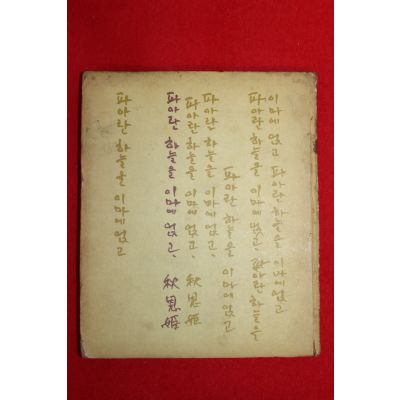 이마에 얹고 파아란 하늘을 이마에 얹고
파아란 하늘을 이마에 얹고, 파아란 하늘을
파아란 하늘을 이마에 얹고
파아란 하늘을 이마에 얹고,
파아란 하늘을 이마에 얹고, 秋恩姬
파아란 하늘을 이마에 얹고, 秋恩姬
파아란 하늘을 이마에 얹고